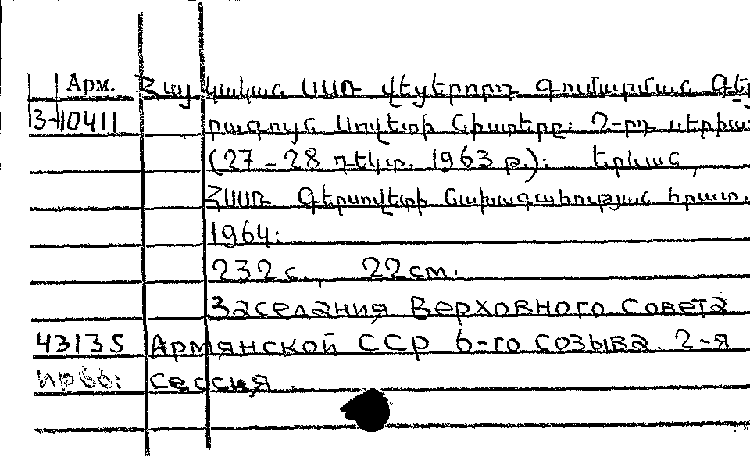 Арм. Հայկական ՍՍՌ վեցերորդ գումարման Գե
3-10411 րագույն Սովետի նիստերը: 2-րդ սեսիա
(27-28 դեկտ. 1963 թ.): Երևան,
ՀՍՍՌ Գերսովետի նախագահության հրատ.
1964:
232 с., 22 см.
Заседания Верховного Совета
43135 Армянской ССР 6-го созыва. 2-я
сессия.